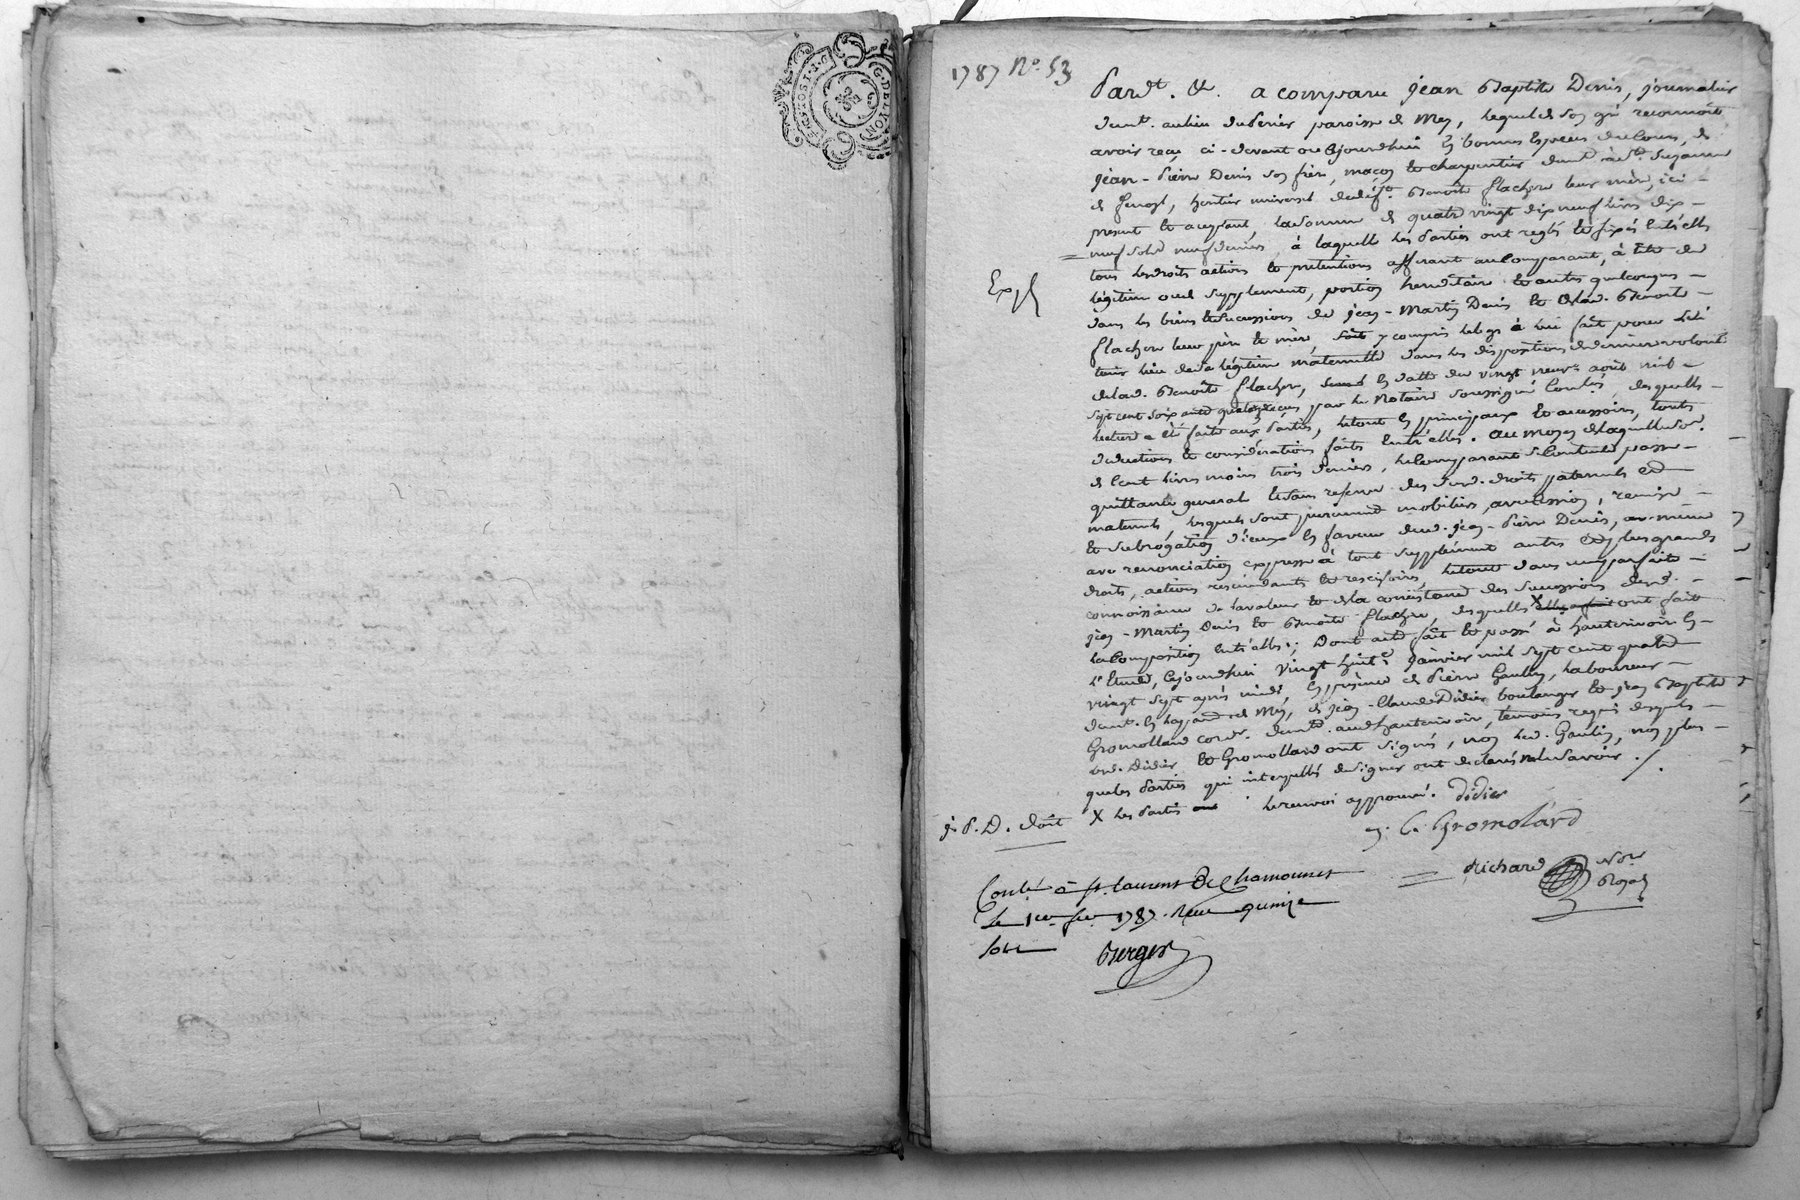 G. DE LYON
2 SOLS
1787 No. 53
Pardt. &c. a comparu jean Baptiste Denis, journalier
demt. au lieu du perier paroisse de Mey, lequel de son gré reconnoît
avoir reçu ci-devant ou aujourdhui en bonnes espèces du cours, de
jean-pierre Denis son frère, maçon et charpentier demt. à ste. suzanne
de , heritier universel de def.te Benoîte flachere leur mère, ici
present et aceptant, la somme de quatre vingt dix neuf livres dix
neuf sols neuf deniers, à laquelle les parties ont reglé et fixés entr'elles
tous les droits actions et pretentions afferant au comparant, à titre de
légitime ou de supplement, portion hereditaire et autres quelconques
dans les biens et sucessions de jean-Martin Denis et de lad. Benoîte
flachere leur père et mère, y compris le legs à lui fait pour lui
tenir lieu de sa légitime maternelle dans les dispositions de derniere volonté
de lad. Benoîte flachere, en datte du vingt neuf août mil
sept cent soixante quatorze reçues par le Notaire soussigné , desquelles
lecture a été faite aux parties, le tout en principaux et acessoires, toutes
deductions et considérations faites entr'elles. au moyen de laquelle some
de cent livres moins trois deniers, le comparant se contente passe
quittance generale et sans reserve des susd. droits paternels et
maternels, lesquels sont purement mobiliers, avec cession, remise
et subrogation d'iceux en faveur dud. jean-pierre Denis, même
avec renonciation expresse à tout supplément autres et plus grands
droits, actions rescindants et rescisoires, le tout dans une parfaite
connoissance de la valeur et de la consistance des sucessions desd.
jean-Martin Denis et Benoîte flachere, desquelles X ont fait
la composition entr'elles; Dont acte fait et passé à hauterivoire en
l'Etude, cejourdhui vingt huit janvier mil sept cent quatre
vingt sept après midi, en présence de pierre Gaulin, laboureur
demt. en lad. de Mey, de jean-Claude Didier boulanger et jean Baptiste
Gromollard cordr. demts. aud. hauterivoire, témoins requis desquels
led. Didier et Gromollard ont signés, non led. Gaulin, non plus
que les parties qui interpellés de signer ont declarés ne le savoir./.
X les parties le renvoi approuvé. Didier
j. P. D. doit
j. C. Gromolard
Richard Nore.
Royal
Conlé. à st. laurent De Chamousset
Le 1er. fer. 1787. Reçu quinze
sols Berger
Expé